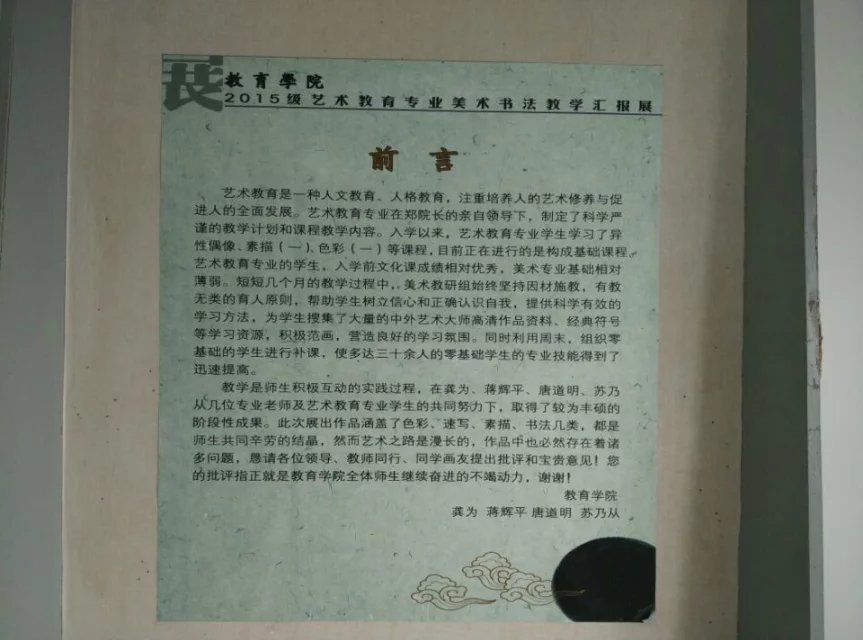 展
教育學院
2015级艺术教育专业美术书法教学汇报展
前言
艺术教育是一种人文教育、人格教育，注重培养人的艺术修养与促
进人的全面发展。艺术教育专业在郑院长的亲自领导下，制定了科学严
谨的教学计划和课程教学内容。入学以来，艺术教育专业学生学习了异
性偶像、素描（一）、色彩（一）等课程，目前正在进行的是构成基础课程。
艺术教育专业的学生，入学前文化课成绩相对优秀，美术专业基础相对
薄弱。短短几个月的教学过程中，美术教研组始终坚持因材施教，有教
无类的育人原则，帮助学生树立信心和正确认识自我，提供科学有效的
学习方法，为学生搜集了大量的中外艺术大师高清作品资料、经典符号
等学习资源，积极范画，营造良好的学习氛围。同时利用周末，组织零
基础的学生进行补课，使多达三十余人的零基础学生的专业技能得到了
迅速提高。
教学是师生积极互动的实践过程，在龚为、蒋辉平、唐道明、苏乃
从几位专业老师及艺术教育专业学生的共同努力下，取得了较为丰硕的
阶段性成果。此次展出作品涵盖了色彩、速写、素描、书法几类，都是
师生共同辛劳的结晶，然而艺术之路是漫长的，作品中也必然存在着诸
多问题，恳请各位领导、教师同行、同学画友提出批评和宝贵意见！您
的批评指正就是教育学院全体师生继续奋进的不竭动力，谢谢！
教育学院
龚为 蒋辉平 唐道明 苏乃从